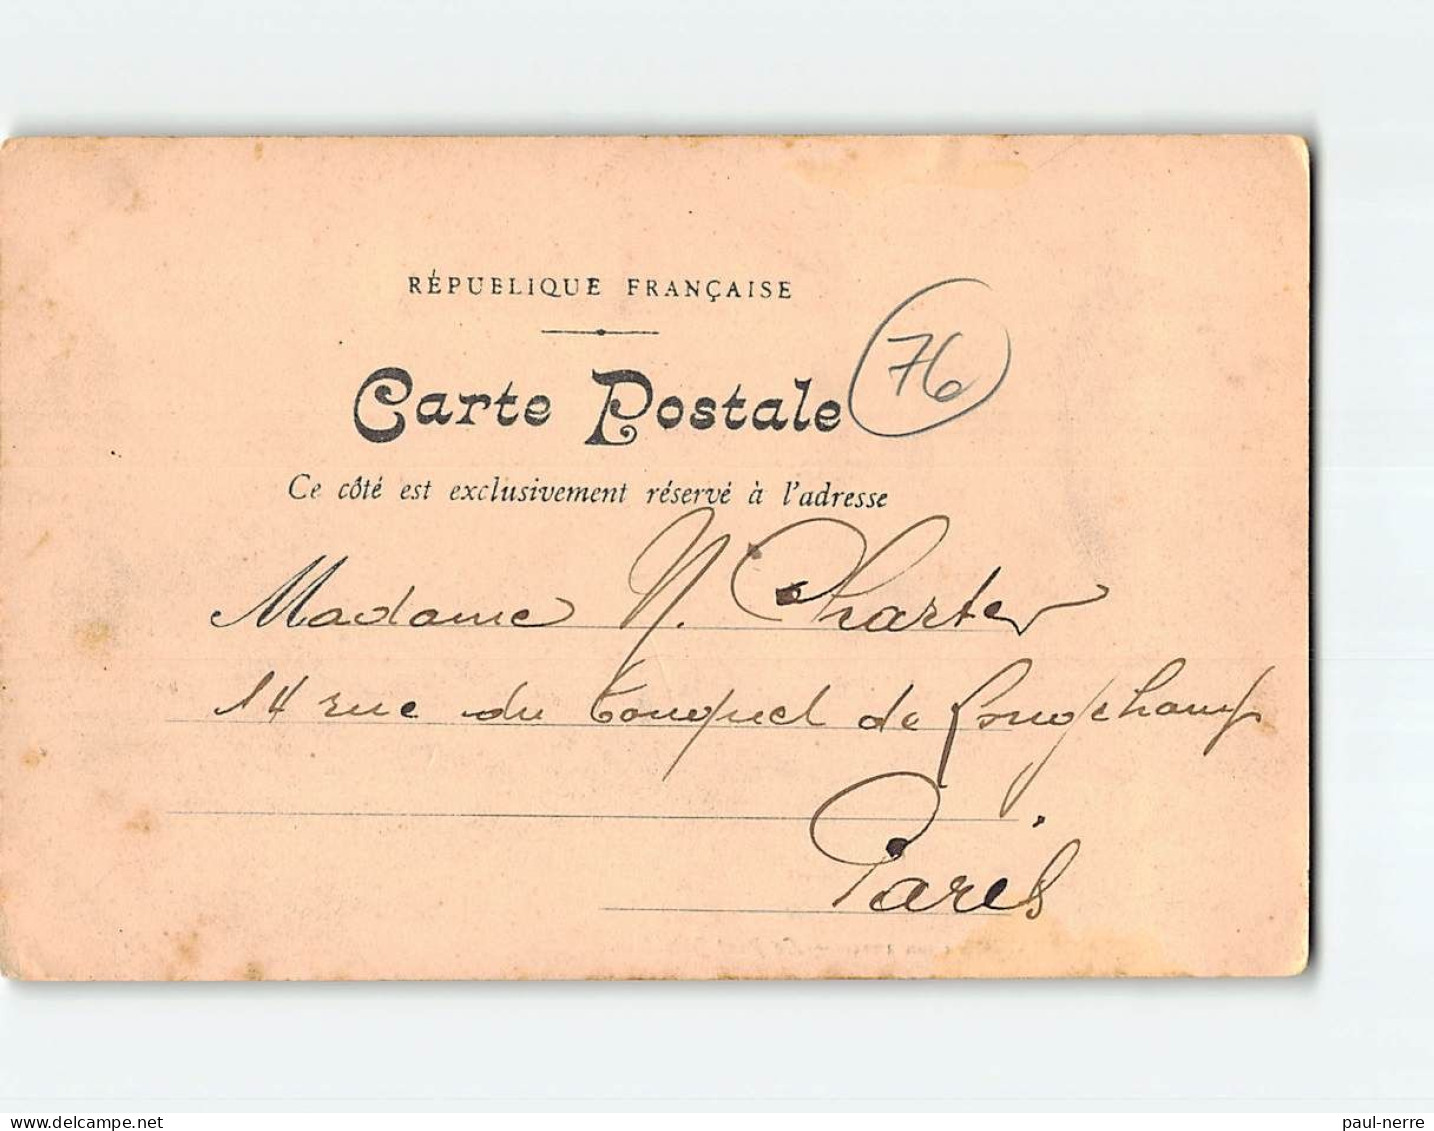 RÉPUBLIQUE FRANÇAISE
Carte Postale
76
Ce côté est exclusivement réservé à l'adresse
Madame N. Charter
14 rue du Bouquet de Longchamp
Paris
delcampe.net
paul-nerre